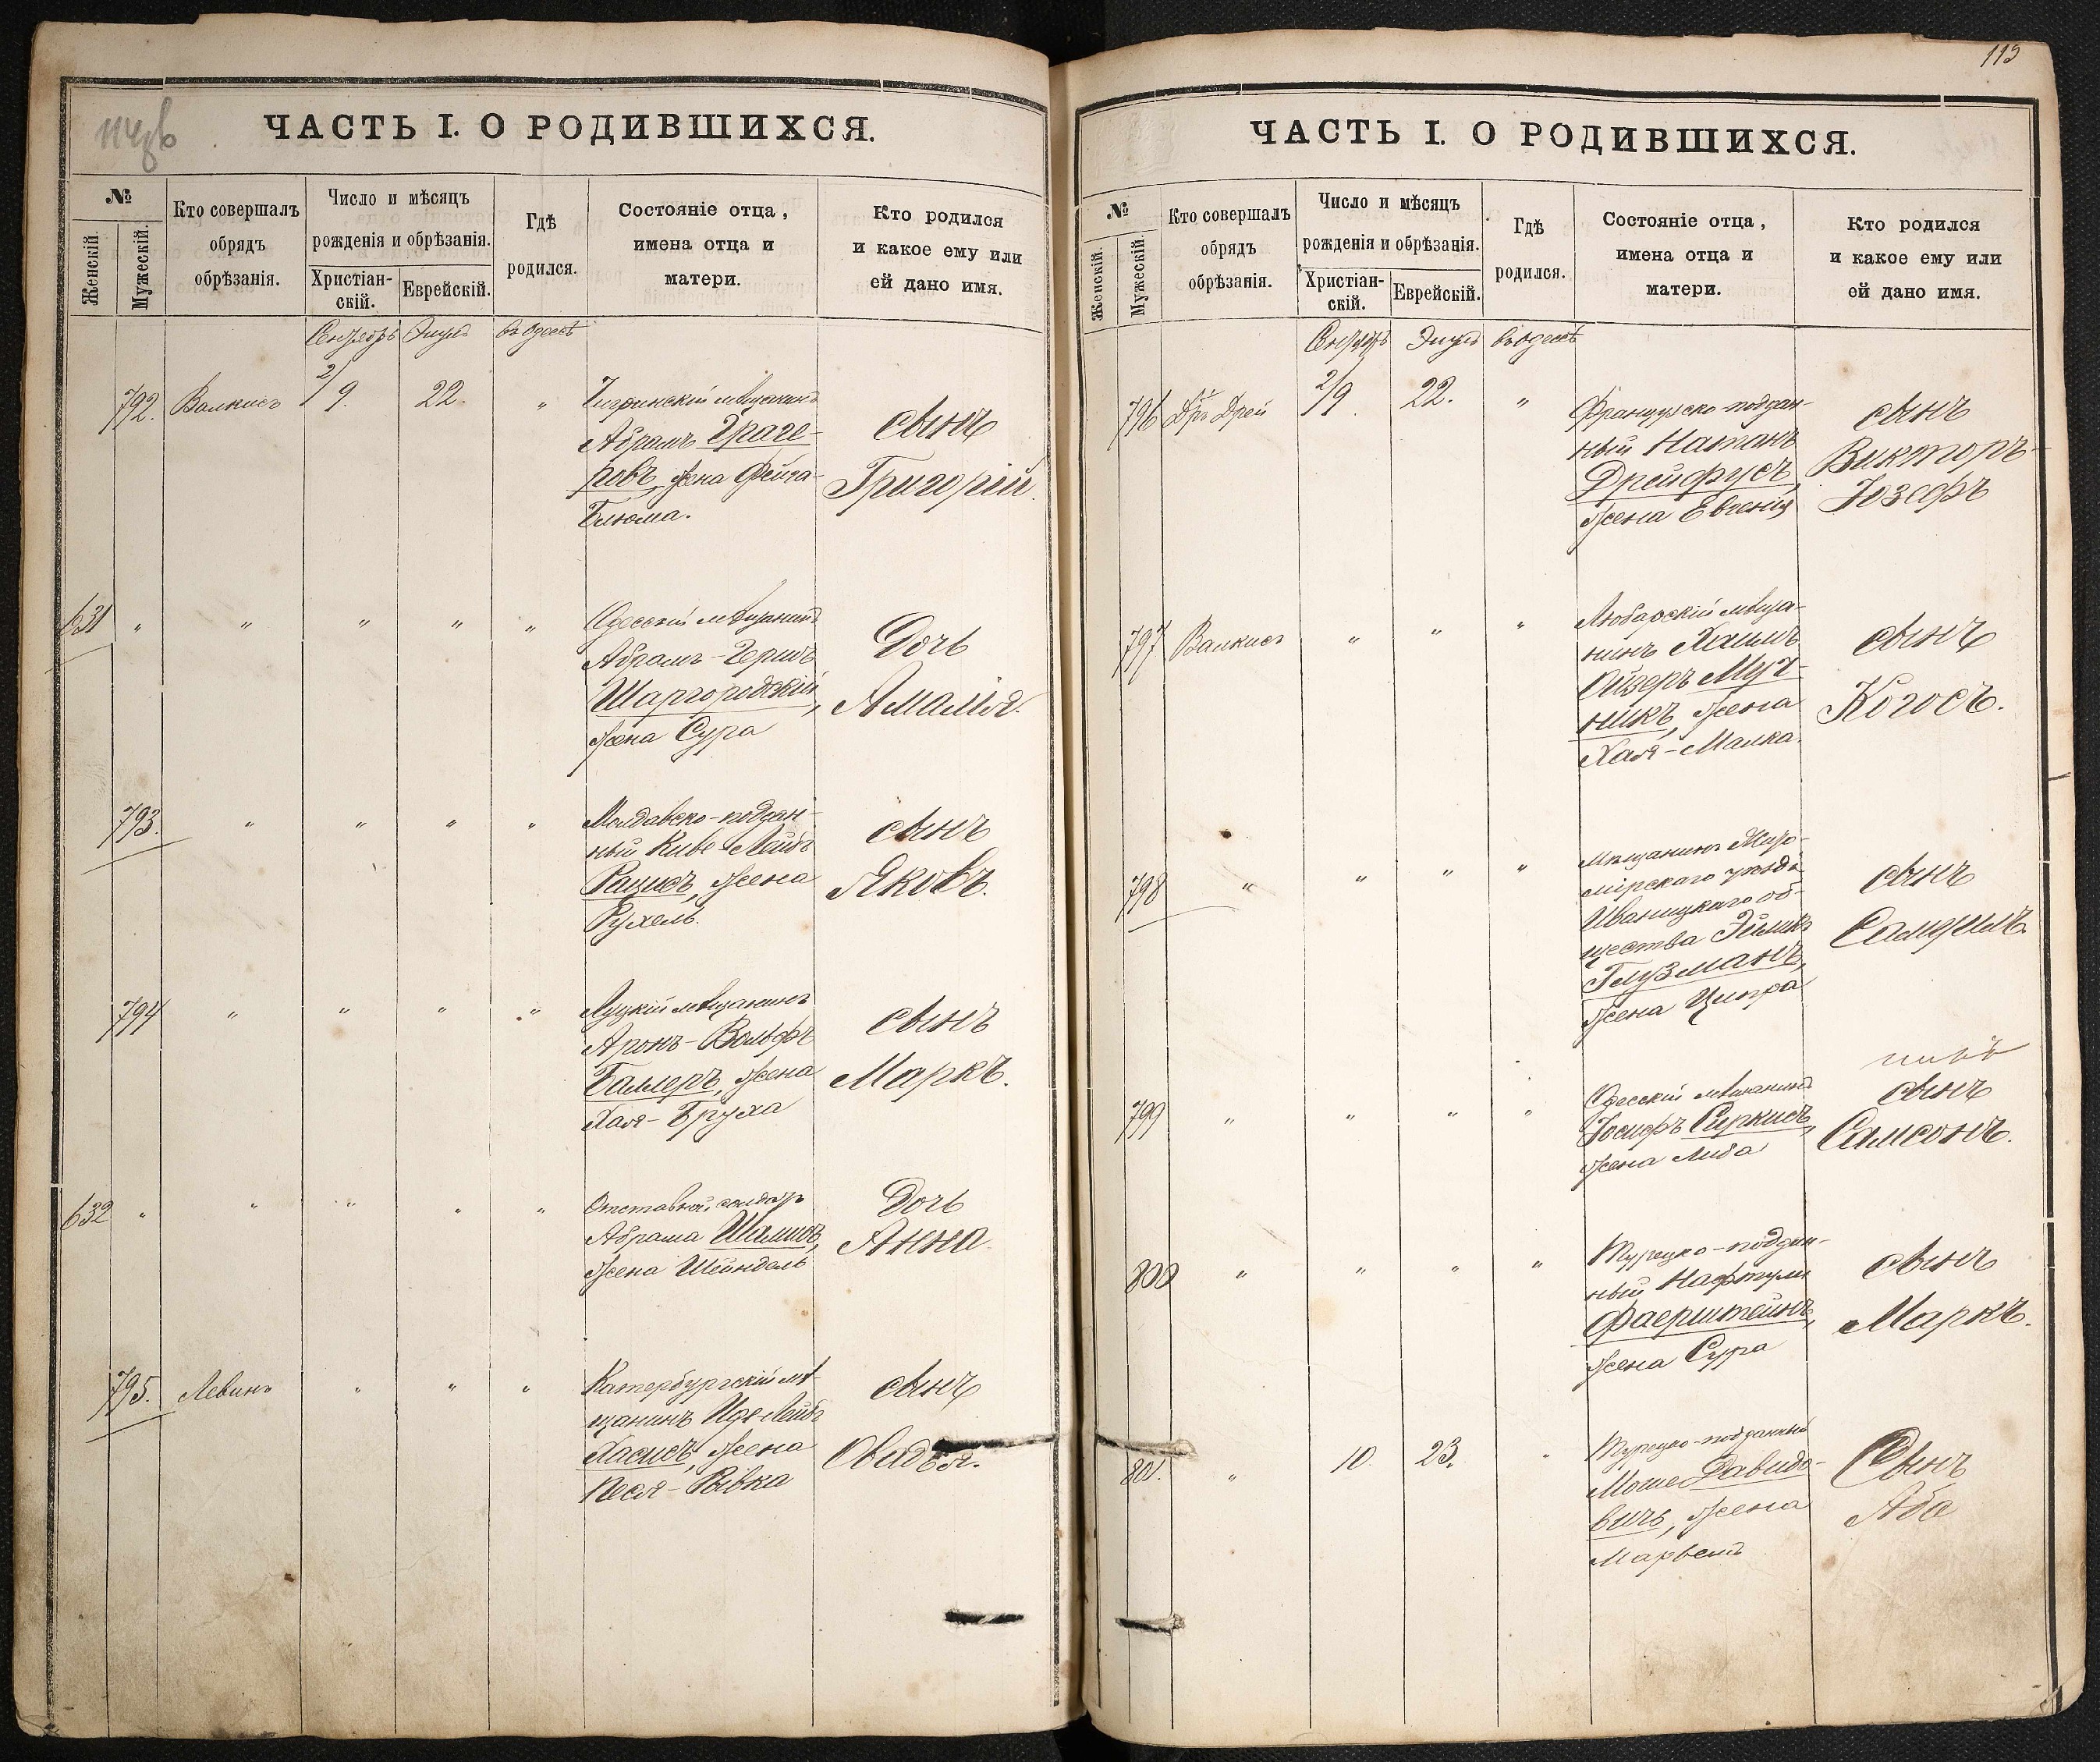 ЧАСТЬ I. О РОДИВШИХСЯ.
№
Женскій.
Мужескій.
Кто совершалъ
обрядъ
обрѣзанія.
Число и мѣсяцъ
рожденія и обрѣзанія.
Христіан-
скій.
Еврейскій.
Гдѣ
родился.
Состояніе отца,
имена отца и
матери.
Кто родился
и какое ему или
ей дано имя.
Сентябрь Элулъ въ Одессѣ
792. Валкисъ 2/9. 22. "
мѣщанинъ
Абрамъ Траге-
ровъ, жена Фейга-
Блюма.
сынъ
Григорій.
631 " " " " "
Одесскій мѣщанинъ
Абрамъ-Гершъ
Шаргородскій,
жена Сура
Дочь
Амалія.
793. " " " "
Молдавско-поддан-
ный Киве-Лейбъ
Рацисъ, жена
Рухель.
сынъ
Яковъ.
794 " " " "
Луцкій мѣщанинъ
Аронъ-Вольфъ
Баллеръ, жена
Хая-Бруха
сынъ
Маркъ.
632 " " " " "
Отставной солдатъ
Абрама
жена Шейндель
Дочь
Анна.
795. Левинъ " " "
Катербургскій мѣ-
щанинъ Иде-Лейбъ
Хасисъ, жена
Песя-Ривка
сынъ
Овадья.
113
ЧАСТЬ I. О РОДИВШИХСЯ.
№
Женскій.
Мужескій.
Кто совершалъ
обрядъ
обрѣзанія.
Число и мѣсяцъ
рожденія и обрѣзанія.
Христіан-
скій.
Еврейскій.
Гдѣ
родился.
Состояніе отца,
имена отца и
матери.
Кто родился
и какое ему или
ей дано имя.
Сентябрь Элулъ въ Одессѣ
796 Дръ Дрей 2/9. 22. "
Французско-поддан-
ный Натанъ
Дрейфусъ,
жена Евгенія
сынъ
Викторъ-
Іозефъ
797 Валкисъ " " "
Любарскій мѣща-
нинъ Хаимъ
Ойзеръ Муч-
никъ, жена
Хая-Малка.
сынъ
Когосъ.
798 " " " "
Мѣщанинъ Жито-
мірскаго уѣзда
Иваницкаго об-
щества
Глузманъ,
жена Ципра
сынъ
799 " " " "
Одесскій мѣщанинъ
Іосифъ Сиркисъ,
жена Либа
сынъ
Самсонъ.
800 " " " "
Турецко-поддан-
ный Нафтули
Фаерштейнъ,
жена Сура
сынъ
Маркъ.
801. " 10. 23. "
Турецко-подданный
Моше Давидо-
вичъ, жена
Сынъ
Аба